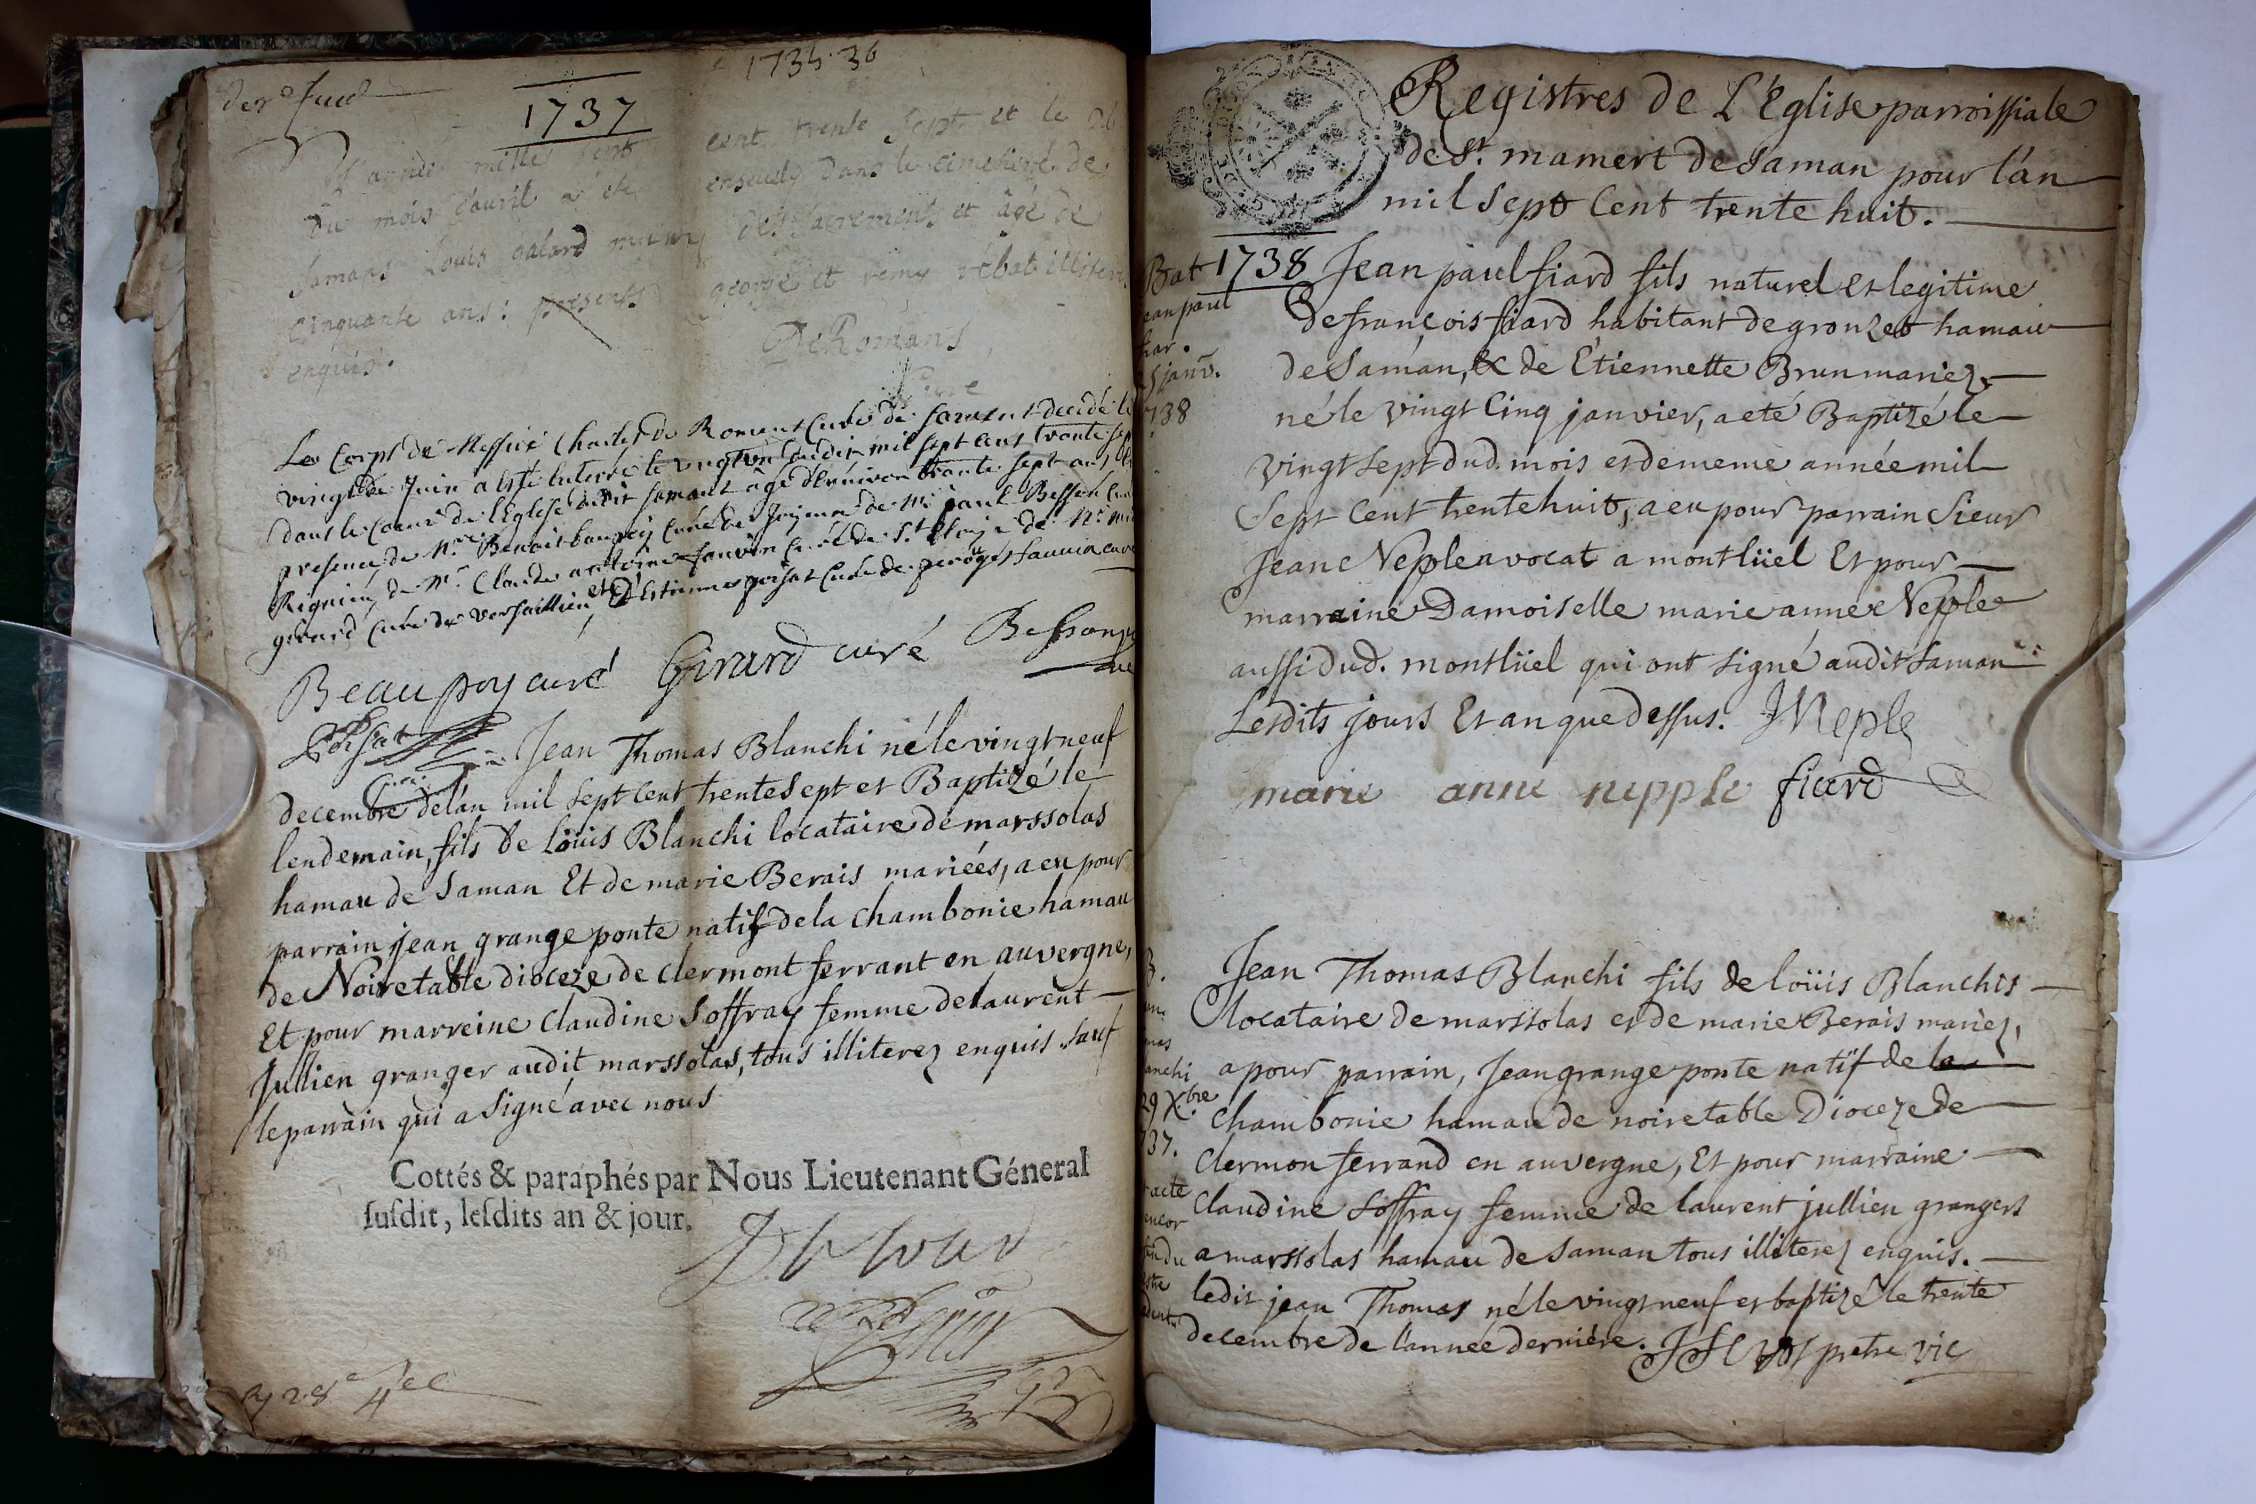 1735. 36
1737
L'année mille sept cent trente sept et le 26
du mois d'auril a été enseuely dans le cimetiere de
Samans Louis galard muny des sacrements et âgé de
cinquante ans: presents george et remy rebat illiterez
enquis.
DeRomans
Le Corps de Messire Charles de Romans Curé de Samans decedé le
vingt de Juin a esté enterré le vingt un dudit mil sept cent trente sept
dans le Coeur de l'Eglise dudit Samans âgé d'environ trente sept ans
presence de Mre Benoit Curé de de Mre paul Besson Curé
Rignieu, de Mre Claude antoine fauvin Curé de St Eloy de Mre
girard Curé de Versaillieu et d'Estienne poisat Curé de perouges
Beaupoy curé Girard curé Besson
Poisat
Jean Thomas Blanchi né le vingt neuf
decembre de l'an mil sept cent trente sept et Baptizé le
lendemain, fils de Loüis Blanchi locataire de marssolas
hamau de Saman Et de marie Berais mariées, a eu pour
parrain jean grange ponte natif de la chambonie hamau
de Noiretable dioceze de clermont ferrant en auvergne,
Et pour marreine claudine Soffray femme de laurent
Jullien granger audit marssolas, tous illiterez enquis sauf
le parrain qui a signé avec nous
Cottés & paraphés par Nous Lieutenant Géneral
susdit, lesdits an & jour.
Registres de L'Eglise parroissiale
de St. mamert de Saman pour l'an
mil sept Cent trente huit.
Bat 1738 Jean paul fiard fils naturel et legitime
jean paul
de françois fiard habitant de grouzet hamau
fiar.
25 janv.
de Saman, & de Etiennette Brun mariez,
1738
né le vingt Cinq janvier, a eté Baptizé le
vingt sept dud. mois et de meme année mil
Sept Cent trente huit, a eu pour parrain Sieur
Jean Neple avocat a montlüel Et pour
marraine Damoiselle marie anne Neple
aussi dud. montlüel qui ont signé audit Saman
Lesdits jours Et an que dessus. JNeple
marie anne nepple fiard
Jean Thomas Blanchi fils de loüis Blanchis
locataire de marssolas et de marie Berais mariez,
a pour parrain, Jean grange ponte natif de la
29 Xbre
chambonie hamau de noiretable Dioceze de
737.
clermon ferrand en auvergne, Et pour marraine
acte
claudine Soffray femme de laurent jullien grangers
a marssolas hamau de Saman tous illiterez enquis.
ledit jean Thomas né le vingt neuf et baptizé le trente
decembre de l'année derniére. pretre vic